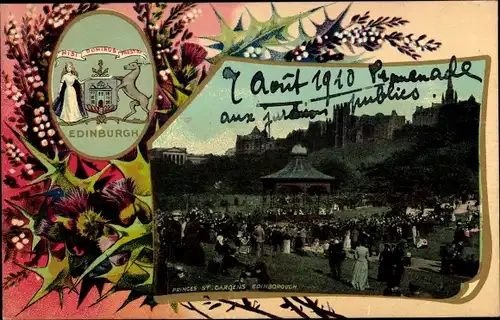 NISI DOMINUS FRUSTRA
EDINBURGH
7 Août 1910 Promenade
aux jardins publics.
PRINCES ST. GARDENS EDINBOROUGH